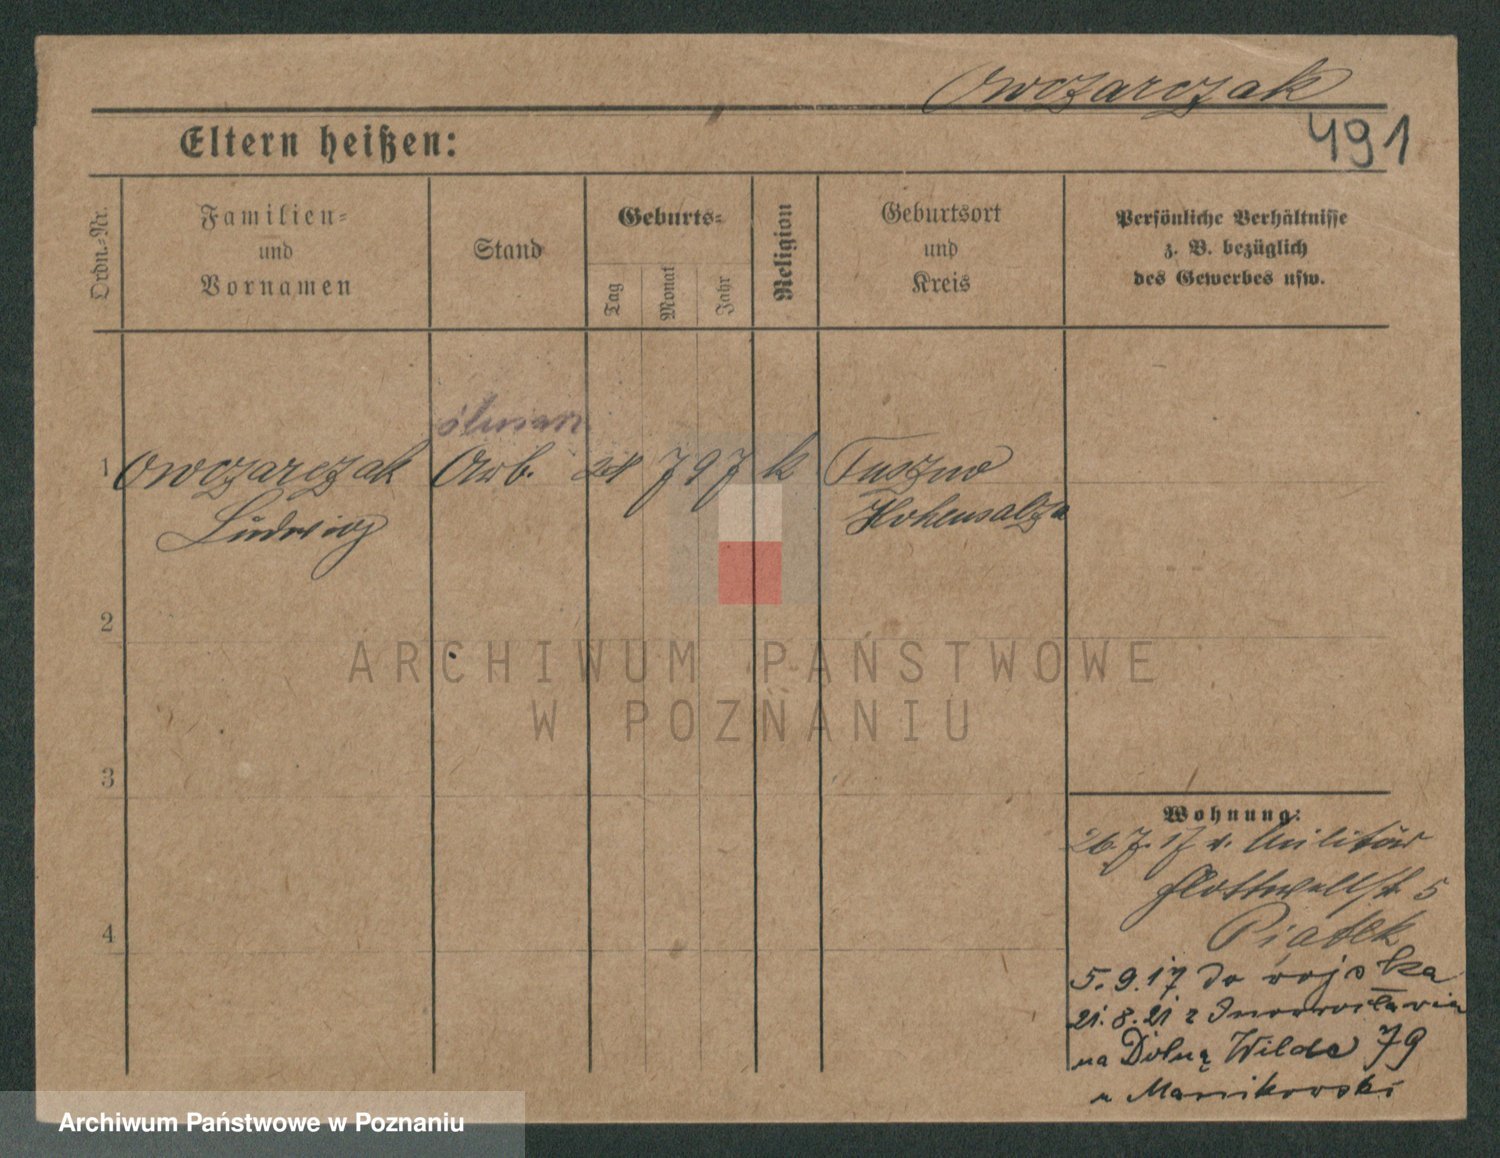 Owczarczak
491
Eltern heißen:
Ordn.-Nr.
Familien-
und
Vornamen
Stand
Geburts-
Tag
Monat
Jahr
Religion
Geburtsort
und
Kreis
Persönliche Verhältnisse
z. B. bezüglich
des Gewerbes usw.
1 Owczarczak Arb. 24 7 97 k Tuszno
Ludwig Hohensalza
2
3
4
Wohnung:
26.7.17 v. Militär
Flottwellstr. 5
Piątek
5.9.17 do wojska
21.8.21 z Inowrocławia
na Dolną Wildę 79
u Manikowski
ARCHIWUM PAŃSTWOWE
W POZNANIU
Archiwum Państwowe w Poznaniu